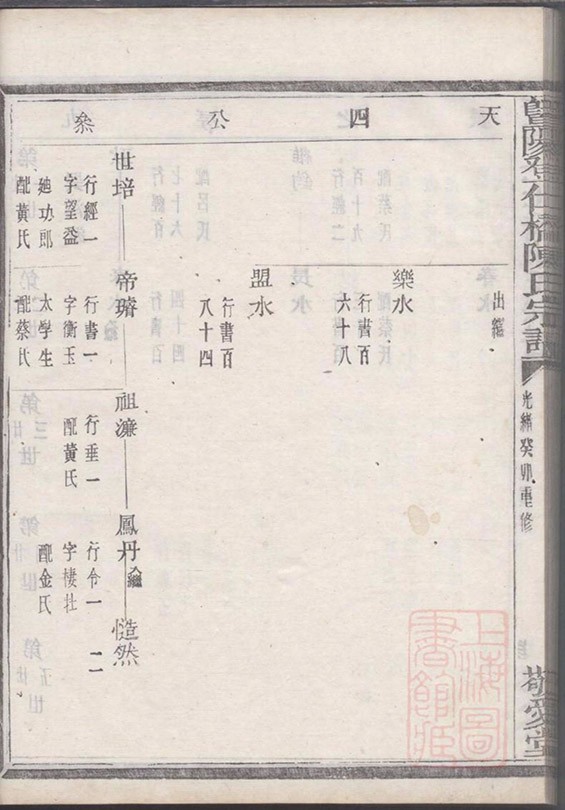 暨陽登仕橋陳氏宗譜
光緒癸卯重修
敬愛堂
天四公叅
出繼
樂水
行書百
六十八
盟水
行書百
八十四
世培
行經一
字望益
廸功郎
配黃氏
帝璿
行書一
字衡玉
太學生
配蔡氏
祖濂
行垂一
配黃氏
鳳丹
繼
行令一
字棲壯
配金氏
愷然
二
上海圖
書館藏